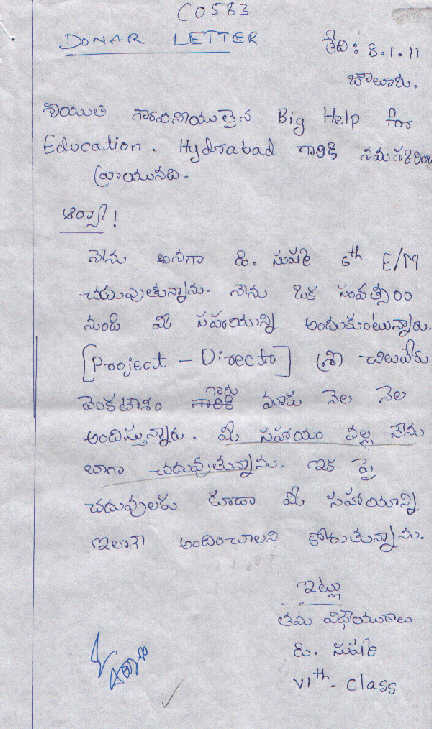 C0583
DONAR LETTER
తేది: 8.1.11
శ్రీయుత గౌరవనీయులైన Big Help for
Education. Hyderabad గారికి నమస్కరించి
వ్రాయునది.
ఆర్యా!
నేను అనగా డి. 6th E/M
చదువుతున్నాను. నేను ఒక సంవత్సరం
నుండి మీ సహాయాన్ని అందుకుంటున్నాను.
[Project - Director] శ్రీ
గారు
మాకు నెల నెల
అందిస్తున్నారు. మీ సహాయం వల్ల నేను
బాగా చదువుతున్నాను. ఇక పై
చదువులకు కూడా మీ సహాయాన్ని
ఇలాగే అందించాలని కోరుతున్నాను.
ఇట్లు
తమ విధేయురాలు
డి.
VIth class